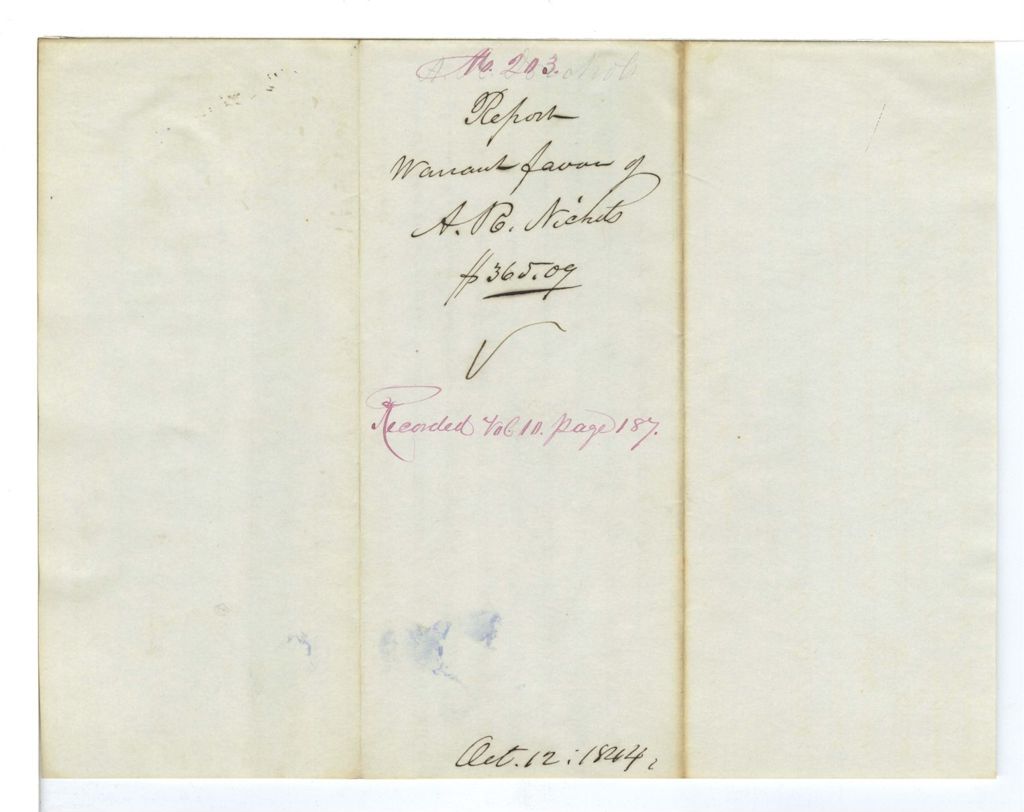 No. 203.
Report
Warrant favor of
A. R. Nichols
$365.09
Recorded Vol 10. page 187.
Oct. 12: 1844,